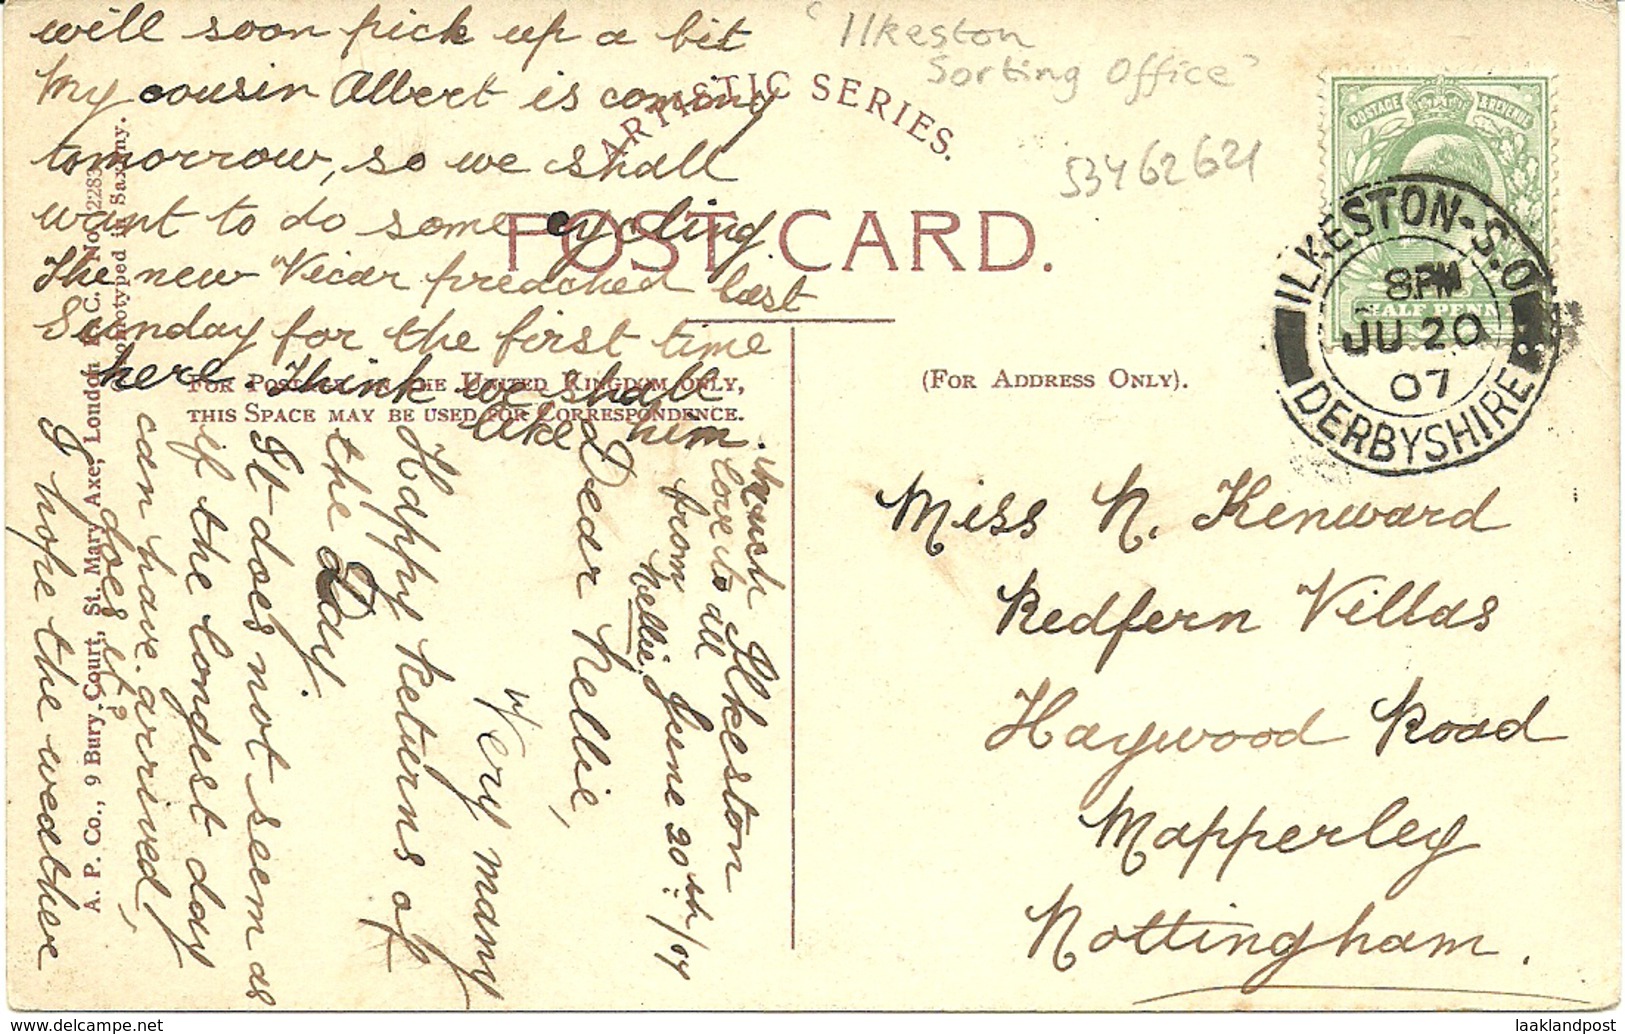 Ilkeston
June 20th/07
Dear Nellie,
Very many
Happy Returns of
the Day
It does not seem as
if the longest day
can have arrived,
does it?
I hope the weather
will soon pick up a bit
My cousin Albert is coming
tomorrow, so we shall
want to do some cycling
The new Vicar preached last
Sunday for the first time
here. I think we shall
like him.
Much
love to all
from
Nellie.
'Ilkeston
Sorting Office'
53462621
ARTISTIC SERIES.
POST CARD.
FOR POSTAGE IN THE UNITED KINGDOM ONLY,
THIS SPACE MAY BE USED FOR CORRESPONDENCE.
(FOR ADDRESS ONLY).
Miss N. Kenward
Redfern Villas
Haywood Road
Mapperley
Nottingham.
POSTAGE & REVENUE
HALF PENNY
ILKESTON-S.O
8 PM
JU 20
07
DERBYSHIRE
A. P. Co., 9 Bury Court, St. Mary Axe, London E. C. No. 2283
in Saxony.
delcampe.net
laaklandpost